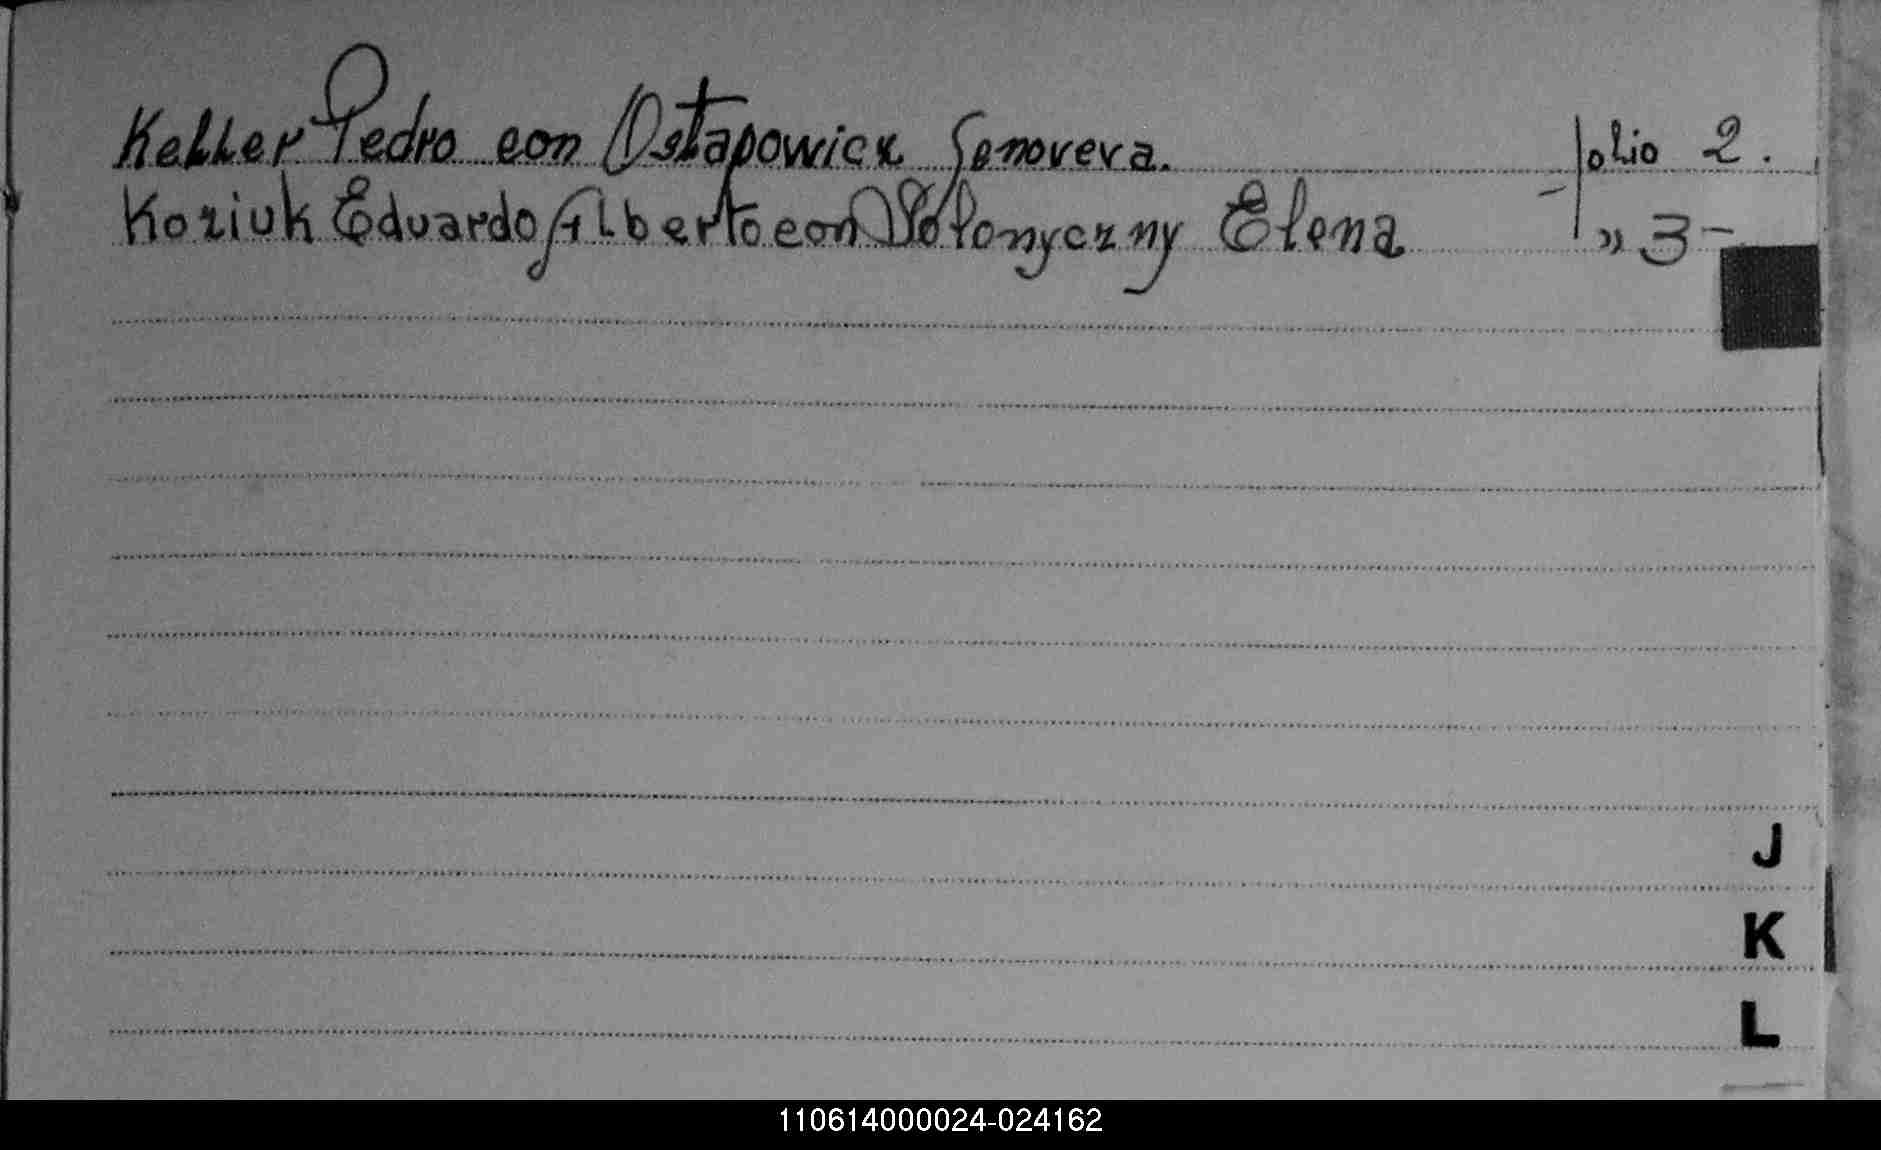 Keller Pedro con Ostapowicz Genoveva. folio 2.
Koziuk Eduardo Alberto con Wolonyczny Elena - " 3-
J
K
L
110614000024-024162